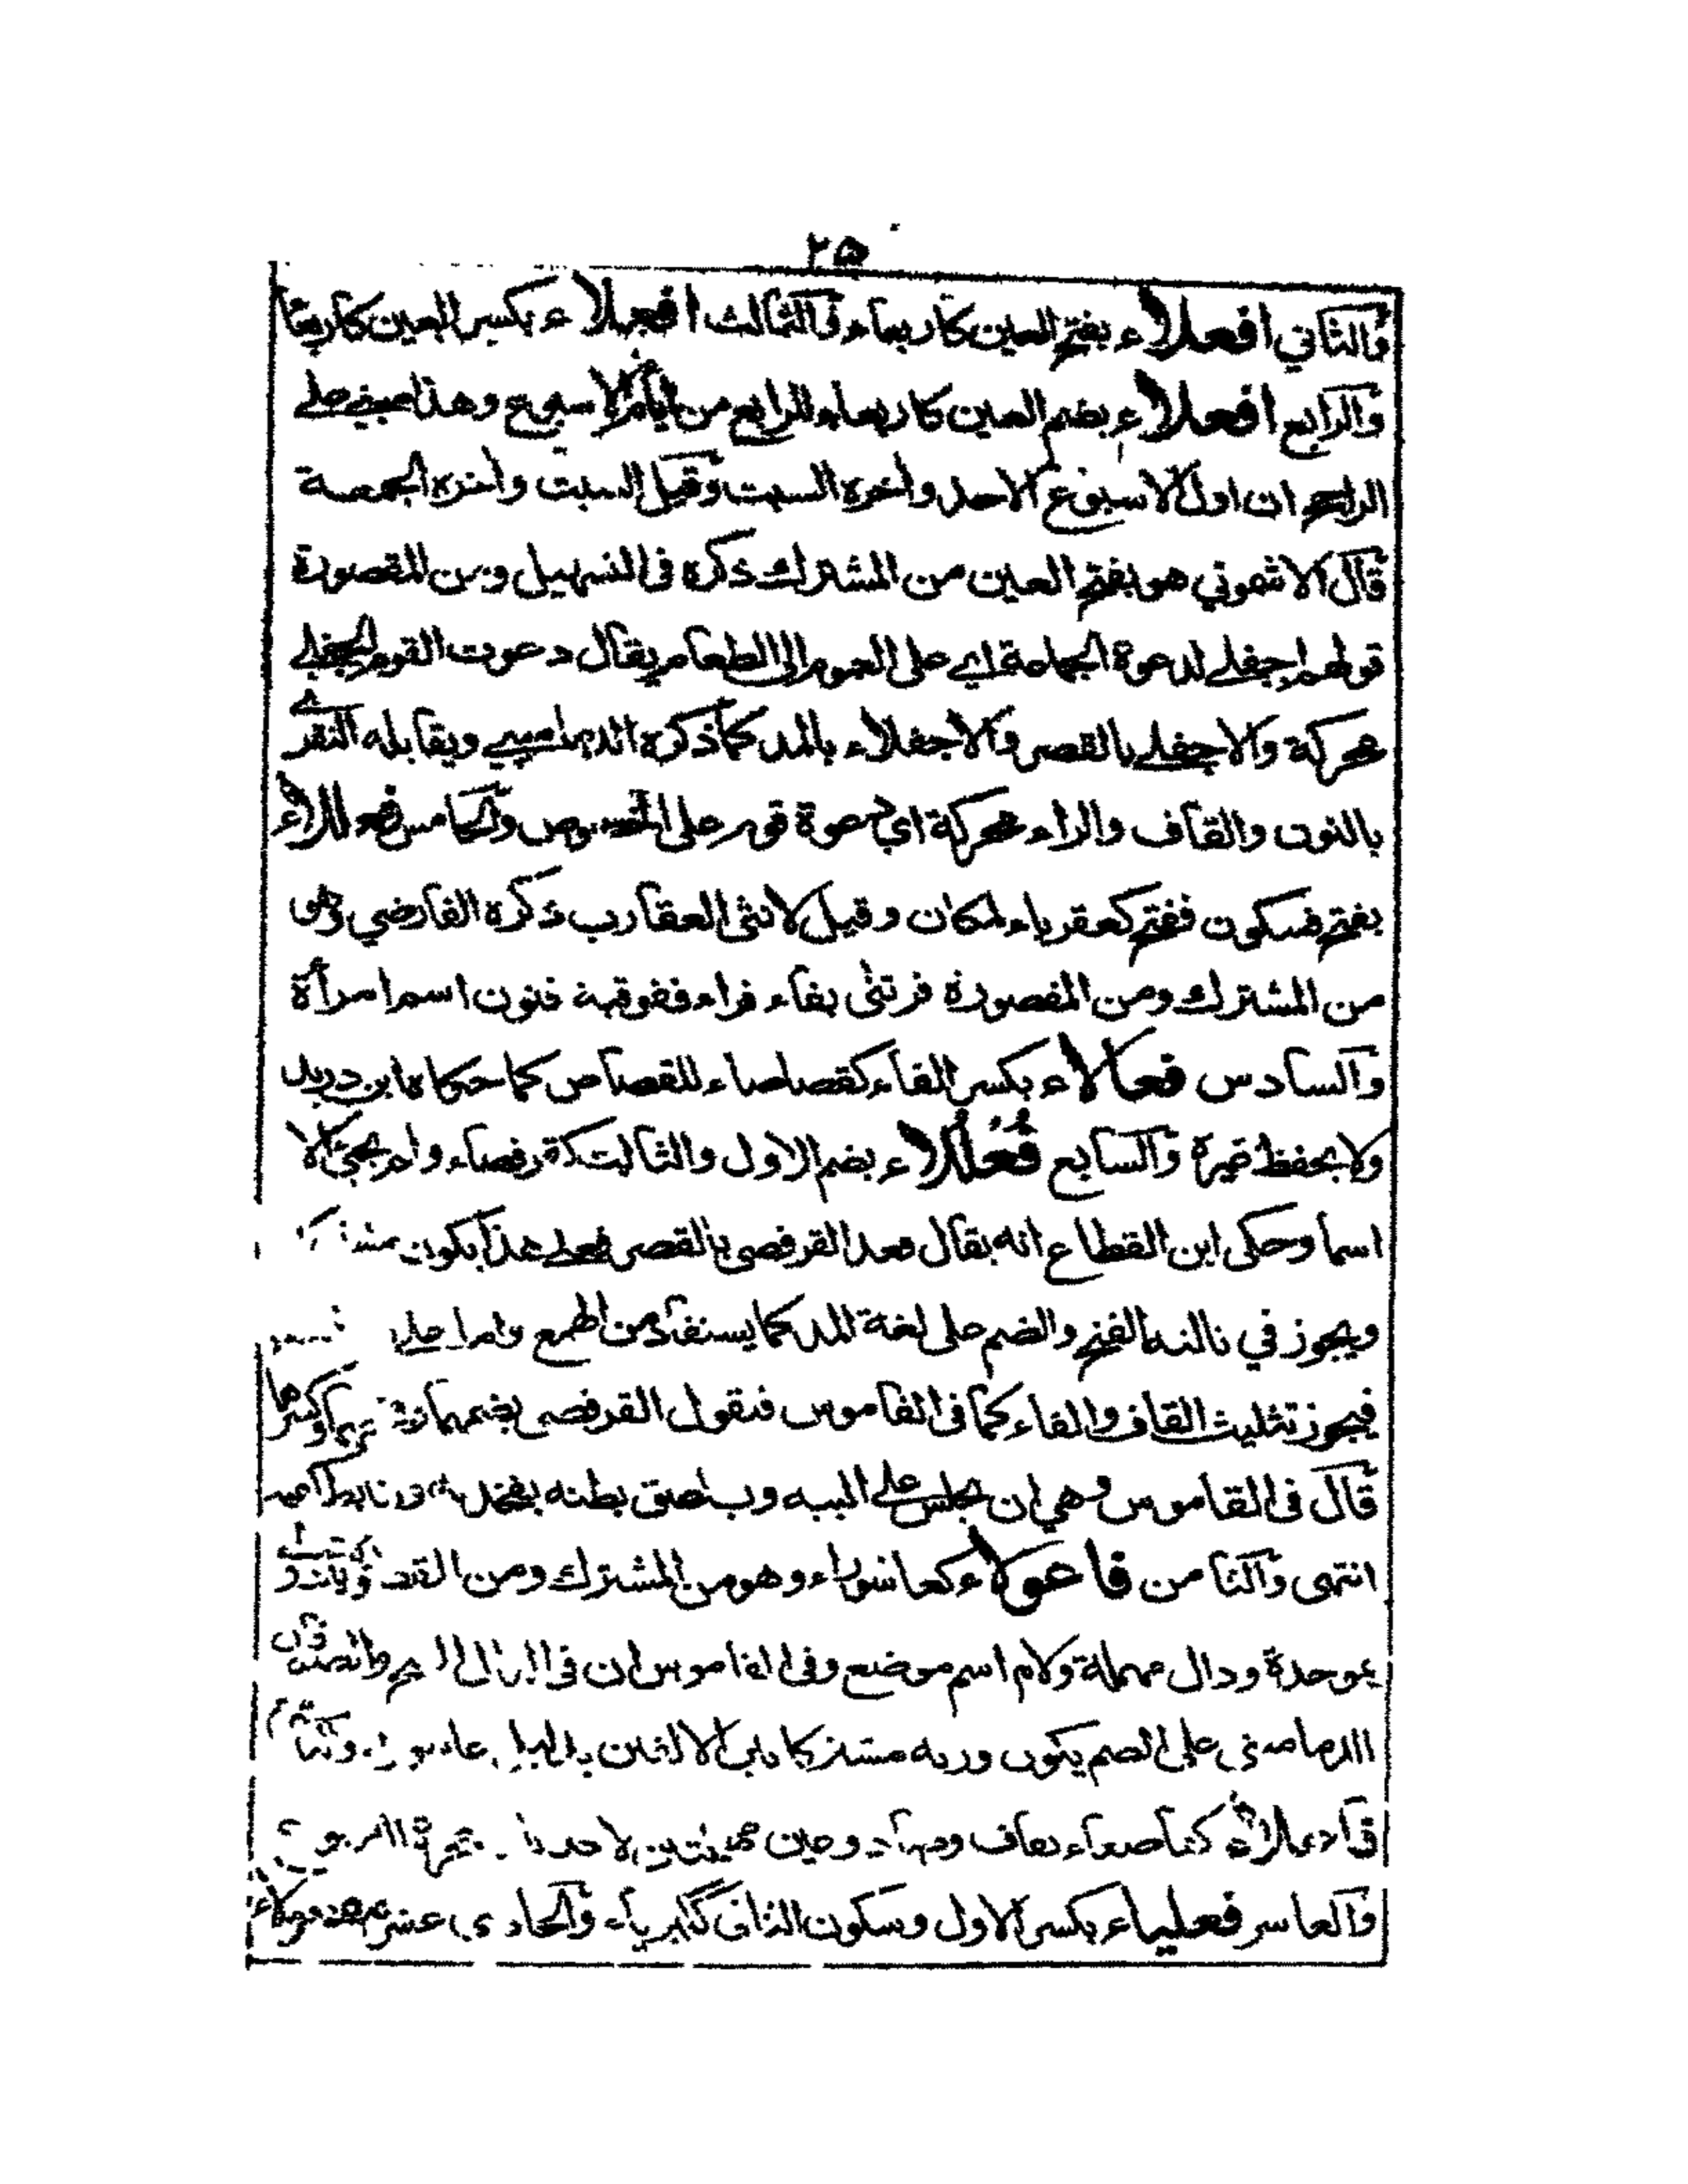 ٢٥
والثاني افعلاء بفتح العين كاربعاء والثالث افعلاء بكسر العين كاربعاء
والرابع افعلاء بضم العين كاربعاء للرابع من ايام الاسبوع وهذا مبني على
الراجح ان اول الاسبوع الاحد واخره السبت وقيل السبت واخره الجمعة
قال الاشموني هو بفتح العين من المشترك ذكره في التسهيل ومن المقصورة
قولهم اجفلى لدعوة الجماعة اي على العموم الى الطعام يقال دعوت القوم الجفلى
محركة والاجفلى بالقصر والاجفلاء بالمد كما ذكره الدماميني ويقابله النقرى
بالنون والقاف والراء محركة اي دعوة قوم على الخصوص والخامس فعللاء
بفتح فسكون ففتح كعقرباء لمكان وقيل لانثى العقارب ذكره الفارضي وهو
من المشترك ومن المقصورة فرتنى بفاء فراء ففوقية فنون اسم امرأة
والسادس فعالاء بكسر الفاء كقصاصاء للقصاص كما حكاه ابن دريد
ولا يحفظ غيره والسابع فُعْلُلاء بضم الاول والثالث كقرفصاء ولم يجئ الا
اسما وحكى ابن القطاع انه يقال قعد القرفصى بالقصر فعلى هذا يكون
ويجوز في ثالثه الفتح والضم على لغة المد كما يستفاد من الهمع واما على
فيجوز تثليث القاف والفاء كما في القاموس فتقول القرفصى بضمهما وكسرها
قال في القاموس وهي ان يجلس على اليبه ويلصق بطنه بفخذيه
انتهى والثامن فاعولاء كعاشوراء وهو من المشترك ومن
بموحدة ودال مهملة ولام اسم موضع وفي القاموس ان في
الدماميني على الضم يكون وزنه مشتركا
كقاصعاء بقاف وصاد وعين مهملتين لاحد
والعاشر فعلياء بكسر الاول وسكون الثاني ككبرياء والحادي عشر